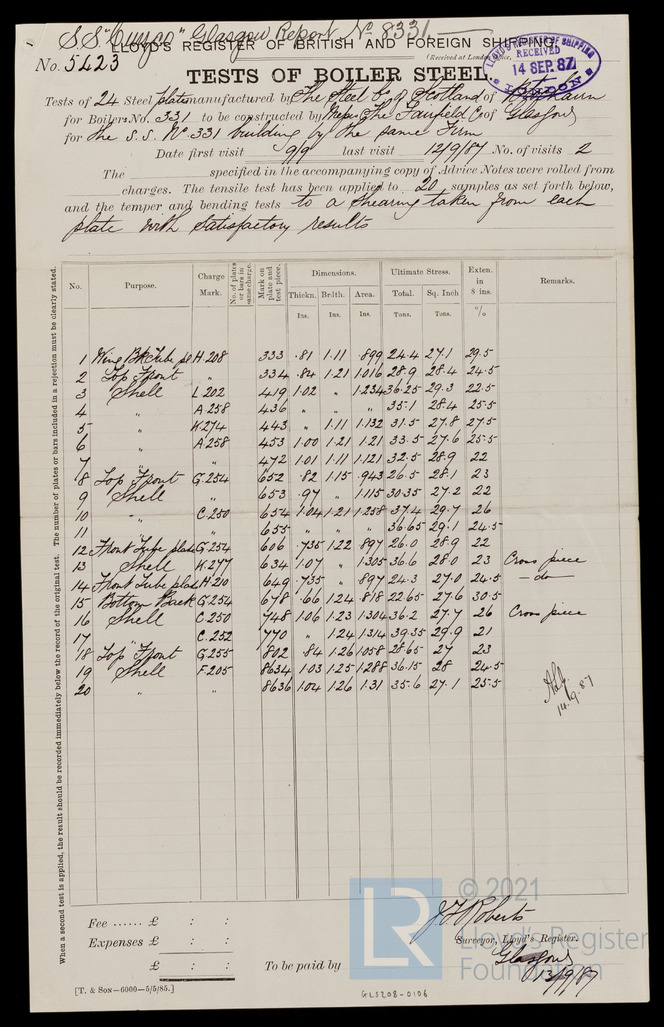 S.S. "Cuzco" Glasgow Report No 8331
LLOYD'S REGISTER OF BRITISH AND FOREIGN SHIPPING.
No. 5423
(Received at London Office,
LLOYD'S REGISTER OF SHIPPING
RECEIVED
14 SEP. 87
LONDON
TESTS OF BOILER STEEL.
Tests of 24 Steel plates manufactured by The Steel Co of Scotland of
for Boilers No. 331 to be constructed by Messrs The Fairfield Co of Glasgow
for the S.S. No 331 building by the same Firm
Date first visit 9/9 last visit 12/9/87 No. of visits 2
The specified in the accompanying copy of Advice Notes were rolled from
charges. The tensile test has been applied to 20 samples as set forth below,
and the temper and bending tests to a shearing taken from each
plate with satisfactory results
When a second test is applied, the result should be recorded immediately below the record of the original test. The number of plates or bars included in a rejection must be clearly stated.
No. Purpose. Charge Mark. No. of plates or bars in same charge. Mark on plate and test piece. Dimensions. Ultimate Stress. Exten. in 8 ins. Remarks.
Thickn. Brdth. Area. Total. Sq. Inch
Ins. Ins. Ins. Tons. Tons. %
1 Wing Bk Tube pl H.208 333 .81 1.11 .899 24.4 27.1 29.5
2 Top Front " 334 .84 1.21 1.016 28.9 28.4 24.5
3 Shell L.202 419 1.02 " 1.234 36.25 29.3 22.5
4 " A.258 436 " " " 35.1 28.4 25.5
5 " K.274 443 " 1.11 1.132 31.5 27.8 27.5
6 " A.258 453 1.00 1.21 1.21 33.5 27.6 25.5
7 " " 472 1.01 1.11 1.121 32.5 28.9 22
8 Top Front G.254 652 .82 1.15 .943 26.5 28.1 23
9 Shell " 653 .97 " 1.115 30.35 27.2 22
10 " C.250 654 1.04 1.21 1.258 37.4 29.7 26
11 " " 655 " " " 36.65 29.1 24.5
12 Front Tube plate G.254 606 .735 1.22 .897 26.0 28.9 22
13 Shell K.277 634 1.07 " 1.305 36.6 28.0 23 Cross piece
14 Front Tube plate H.210 649 .735 " .897 24.3 27.0 24.5 — do —
15 Bottom Back G.254 678 .66 1.24 .818 22.65 27.6 30.5
16 Shell C.250 748 1.06 1.23 1.304 36.2 27.7 26 Cross piece
17 " C.252 770 " 1.24 1.314 39.35 29.9 21
18 Top Front G.255 802 .84 1.26 1.058 28.65 27 23
19 Shell F.205 8634 1.03 1.25 1.288 36.15 28 24.5
20 " " 8636 1.04 1.26 1.31 35.6 27.1 25.5
14.9.87
Fee ...... £ : :
Expenses £ : :
£ : :
To be paid by
J F Roberts
Surveyor, Lloyd's Register.
Glasgow
13/9/87
[T. & SON—6000—5/5/85.]
GLS208-0106
LR
© 2021
Lloyd's Register
Foundation